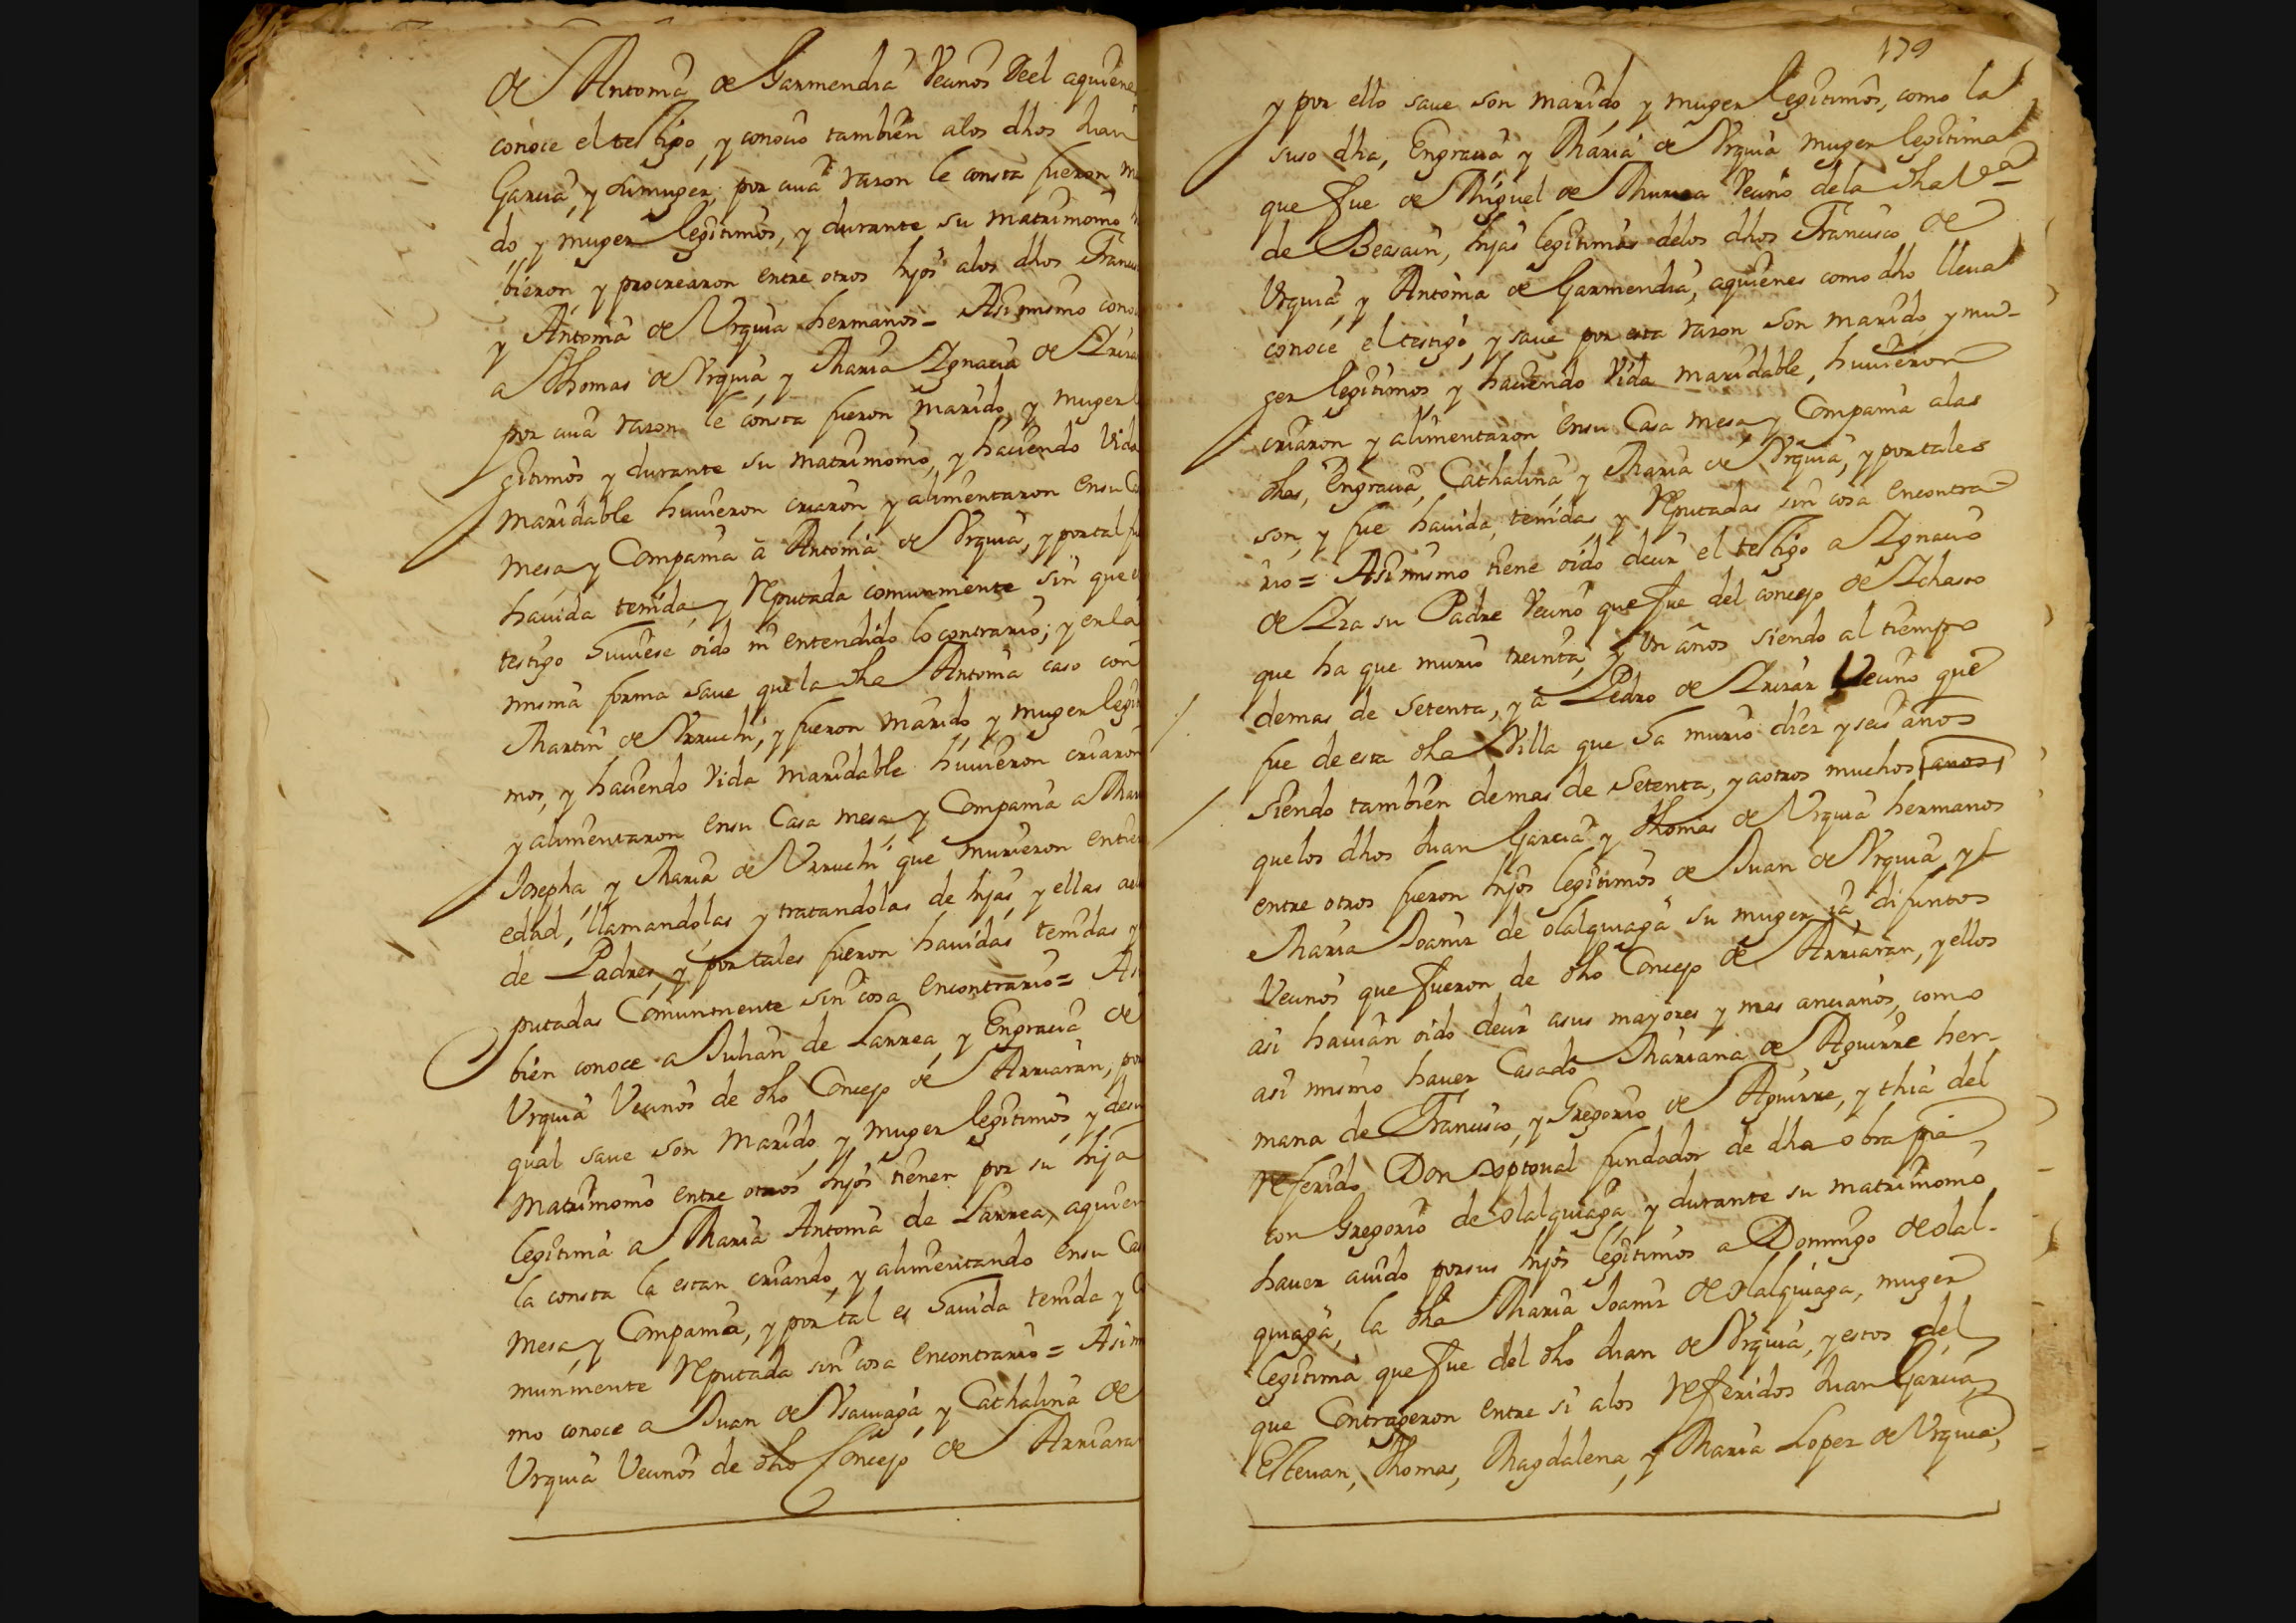 de Antonia de Garmendia Vecinos deel aquiene
conoce el testigo, y conocio tambien alos dhos Juan
Garcia, y sumuger, por cuia razon le consta fueron m
do, y muger legitimos, y durante su matrimonio
bieron, y procrearon entre otros hijos alos dhos Franc
y Antonia de Vrquia hermanos = Asimismo cono
a Thomas de Vrquia, y Maria Ygnacia de
por cuia razon le consta fueron marido, y muger
gitimos y durante su matrimonio, y haciendo vida
maridable huvieron criaron, y alimentaron ensu Ca
mesa y Compañia a Antonia de Vrquia, y portal fu
havida tenida, y Reputada comunmente sin que e
testigo huviese oido ni entendido lo contrario; y enla
misma forma save que la dha Antonia caso con
Martin de Vrruchi, y fueron marido, y muger legiti
mos, y haciendo vida maridable huvieron criaron
y alimentaron ensu Casa mesa y Compañia a Mar
Josepha, y Maria de Vrruchi que murieron entier
edad, llamandolas y tratandolas de hijas, y ellas ael
de Padres, y por tales fueron havidas tenidas y
putadas Comunmente sin cosa Encontrario = As
bien conoce a Julian de Larrea, y Engracia de
Vrquia Vecinos de dho Concejo de Arriaran, por
qual save son marido, y muger legitimos, y desu
Matrimonio entre otros hijos tienen por su hija
legitima a Maria Antonia de Larrea, aquien
la consta la estan criando, y alimentando ensu Cas
mesa, y Compañia, y por tal es havida tenida y
munmente Reputada sin cosa encontrario = Asim
mo conoce a Juan de Ysauiaga, y Cathalina de
Vrquia Vecinos de dho Concejo de Arriara
179
y por ello save son marido, y muger legitimos, como la
suso dha, Engracia y Maria de Vrquia muger legitima
que fue de Miguel de Vecino dela dha Va
de Beasain, hijas legitimas delos dhos Francisco de
Vrquia, y Antonia de Garmendia, aquienes como dho lleva
conoce el testigo, y save por esta razon son marido, y mu-
ger legitimos, y haciendo vida maridable, huvieron
criaron y alimentaron ensu Casa mesa y Compañia alas
dhas, Engracia, Cathalina y Maria de Vrquia, y portales
son, y fue havida, tenidas, y Reputadas sin cosa encontra-
rio = Asimismo tiene oido decir el testigo a Ygnacio
de Yza su Padre Vecino que fue del concejo de Ychaso
que ha que murio treinta, y Vn años siendo al tiempo
demas de setenta, y a Pedro de Vecino que
fue de esta dha Villa que ha murio diez y seis años
siendo tambien demas de setenta, y aotros muchos años
quelos dhos Juan Garcia y Thomas de Vrquia hermanos
entre otros fueron hijos legitimos de Juan de Vrquia, y
Maria Joaniz de olalquiaga su muger ia difuntos
Vecinos que fueron de dho Concejo de Arriaran, y ellos
asi havian oido decir asus mayores y mas ancianos, como
asi mismo haver Casado Mariana de Aguirre her-
mana de Francisco, y Gregorio de Aguirre, y thia del
referido Don Xptoval fundador de dha obra pia
con Gregorio de olalquiaga, y durante su matrimonio
haver avido porsus hijos legitimos a Domingo de olal-
quiaga, la dha Maria Joaniz de olalquiaga, muger
legitima que fue del dho Juan de Vrquia, y estos del
que Contrageron entre si alos referidos Juan Garcia,
Estevan, Thomas, Magdalena, y Maria Lopez de Vrquia,